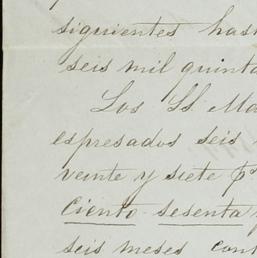 siguientes has
seis mil quint
Los SS. Ma
espresados seis
veinte y siete p
ciento sesenta y
seis meses con